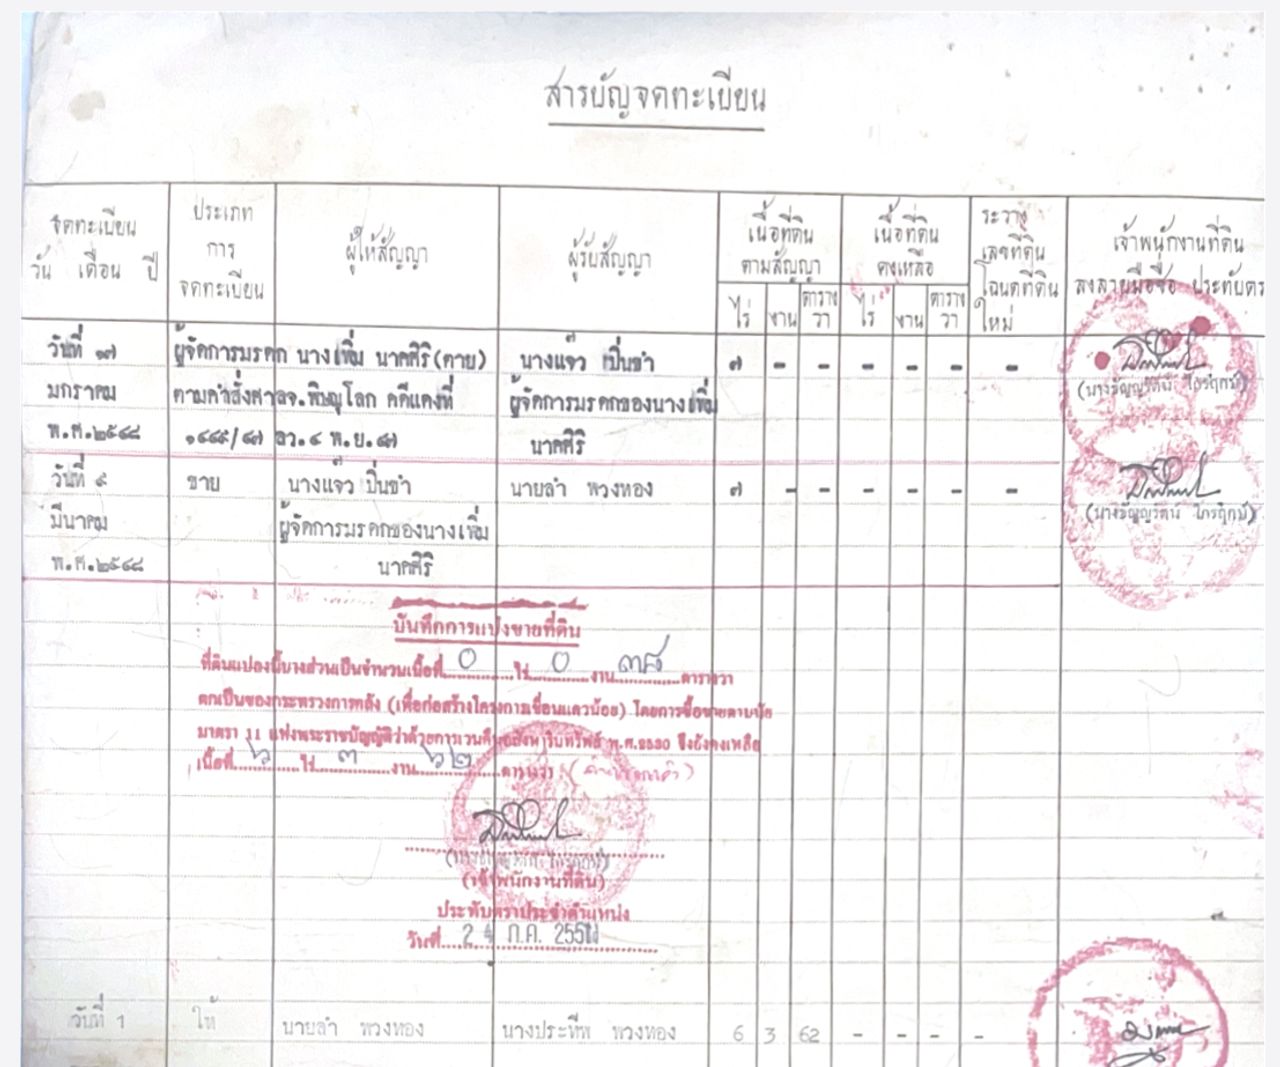 สารบัญจดทะเบียน
จดทะเบียน
วัน เดือน ปี
ประเภท
การ
จดทะเบียน
ผู้ให้สัญญา
ผู้รับสัญญา
เนื้อที่ดิน
ตามสัญญา
ไร่ งาน ตาราง
วา
เนื้อที่ดิน
คงเหลือ
ไร่ งาน ตาราง
วา
ระวาง
เลขที่ดิน
โฉนดที่ดิน
ใหม่
เจ้าพนักงานที่ดิน
ลงลายมือชื่อ ประทับตรา
วันที่ ๑๗ ผู้จัดการมรดก นางเพิ่ม นาคศิริ(ตาย) นางแจ๋ว เป็นขำ ๗ - - - - - -
มกราคม ตามคำสั่งศาลจ.พิษณุโลก คดีแดงที่ ผู้จัดการมรดกของนางเพิ่ม
พ.ศ.๒๕๔๘ ๑๔๔๕/๔๗ ลว.๔ พ.ย.๔๗ นาคศิริ
(นางธัญญรัตน์ ไกรฤกษ์)
วันที่ ๙ ขาย นางแจ๋ว ปิ่นขำ นายลำ พวงทอง ๗ - - - - - -
มีนาคม ผู้จัดการมรดกของนางเพิ่ม
พ.ศ.๒๕๔๘ นาคศิริ
(นางธัญญรัตน์ ไกรฤกษ์)
บันทึกการแบ่งขายที่ดิน
ที่ดินแปลงนี้บางส่วนเป็นจำนวนเนื้อที่ 0 ไร่ 0 งาน ๓๘ ตารางวา
ตกเป็นของกระทรวงการคลัง (เพื่อก่อสร้างโครงการเขื่อนแควน้อย) โดยการซื้อขายตามนัย
มาตรา 11 แห่งพระราชบัญญัติว่าด้วยการเวนคืนอสังหาริมทรัพย์ พ.ศ.2530 จึงยังคงเหลือ
เนื้อที่ ๖ ไร่ ๓ งาน ๖๒ ตารางวา
(นางธัญญรัตน์ ไกรฤกษ์)
(เจ้าพนักงานที่ดิน)
ประทับตราประจำตำแหน่ง
วันที่ 24 ก.ค.
วันที่ 1 ให้ นายลำ พวงทอง นางประทีพ พวงทอง 6 3 62 - - - -